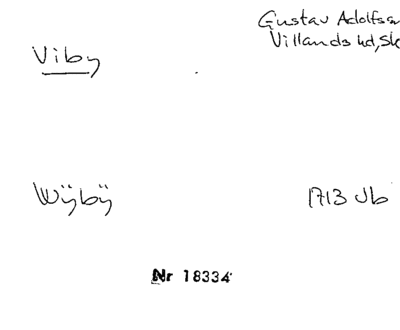 Viby
Gustav Adolfs
Villands hd, Sk
Wÿbÿ
1713 Jb
Nr 18334